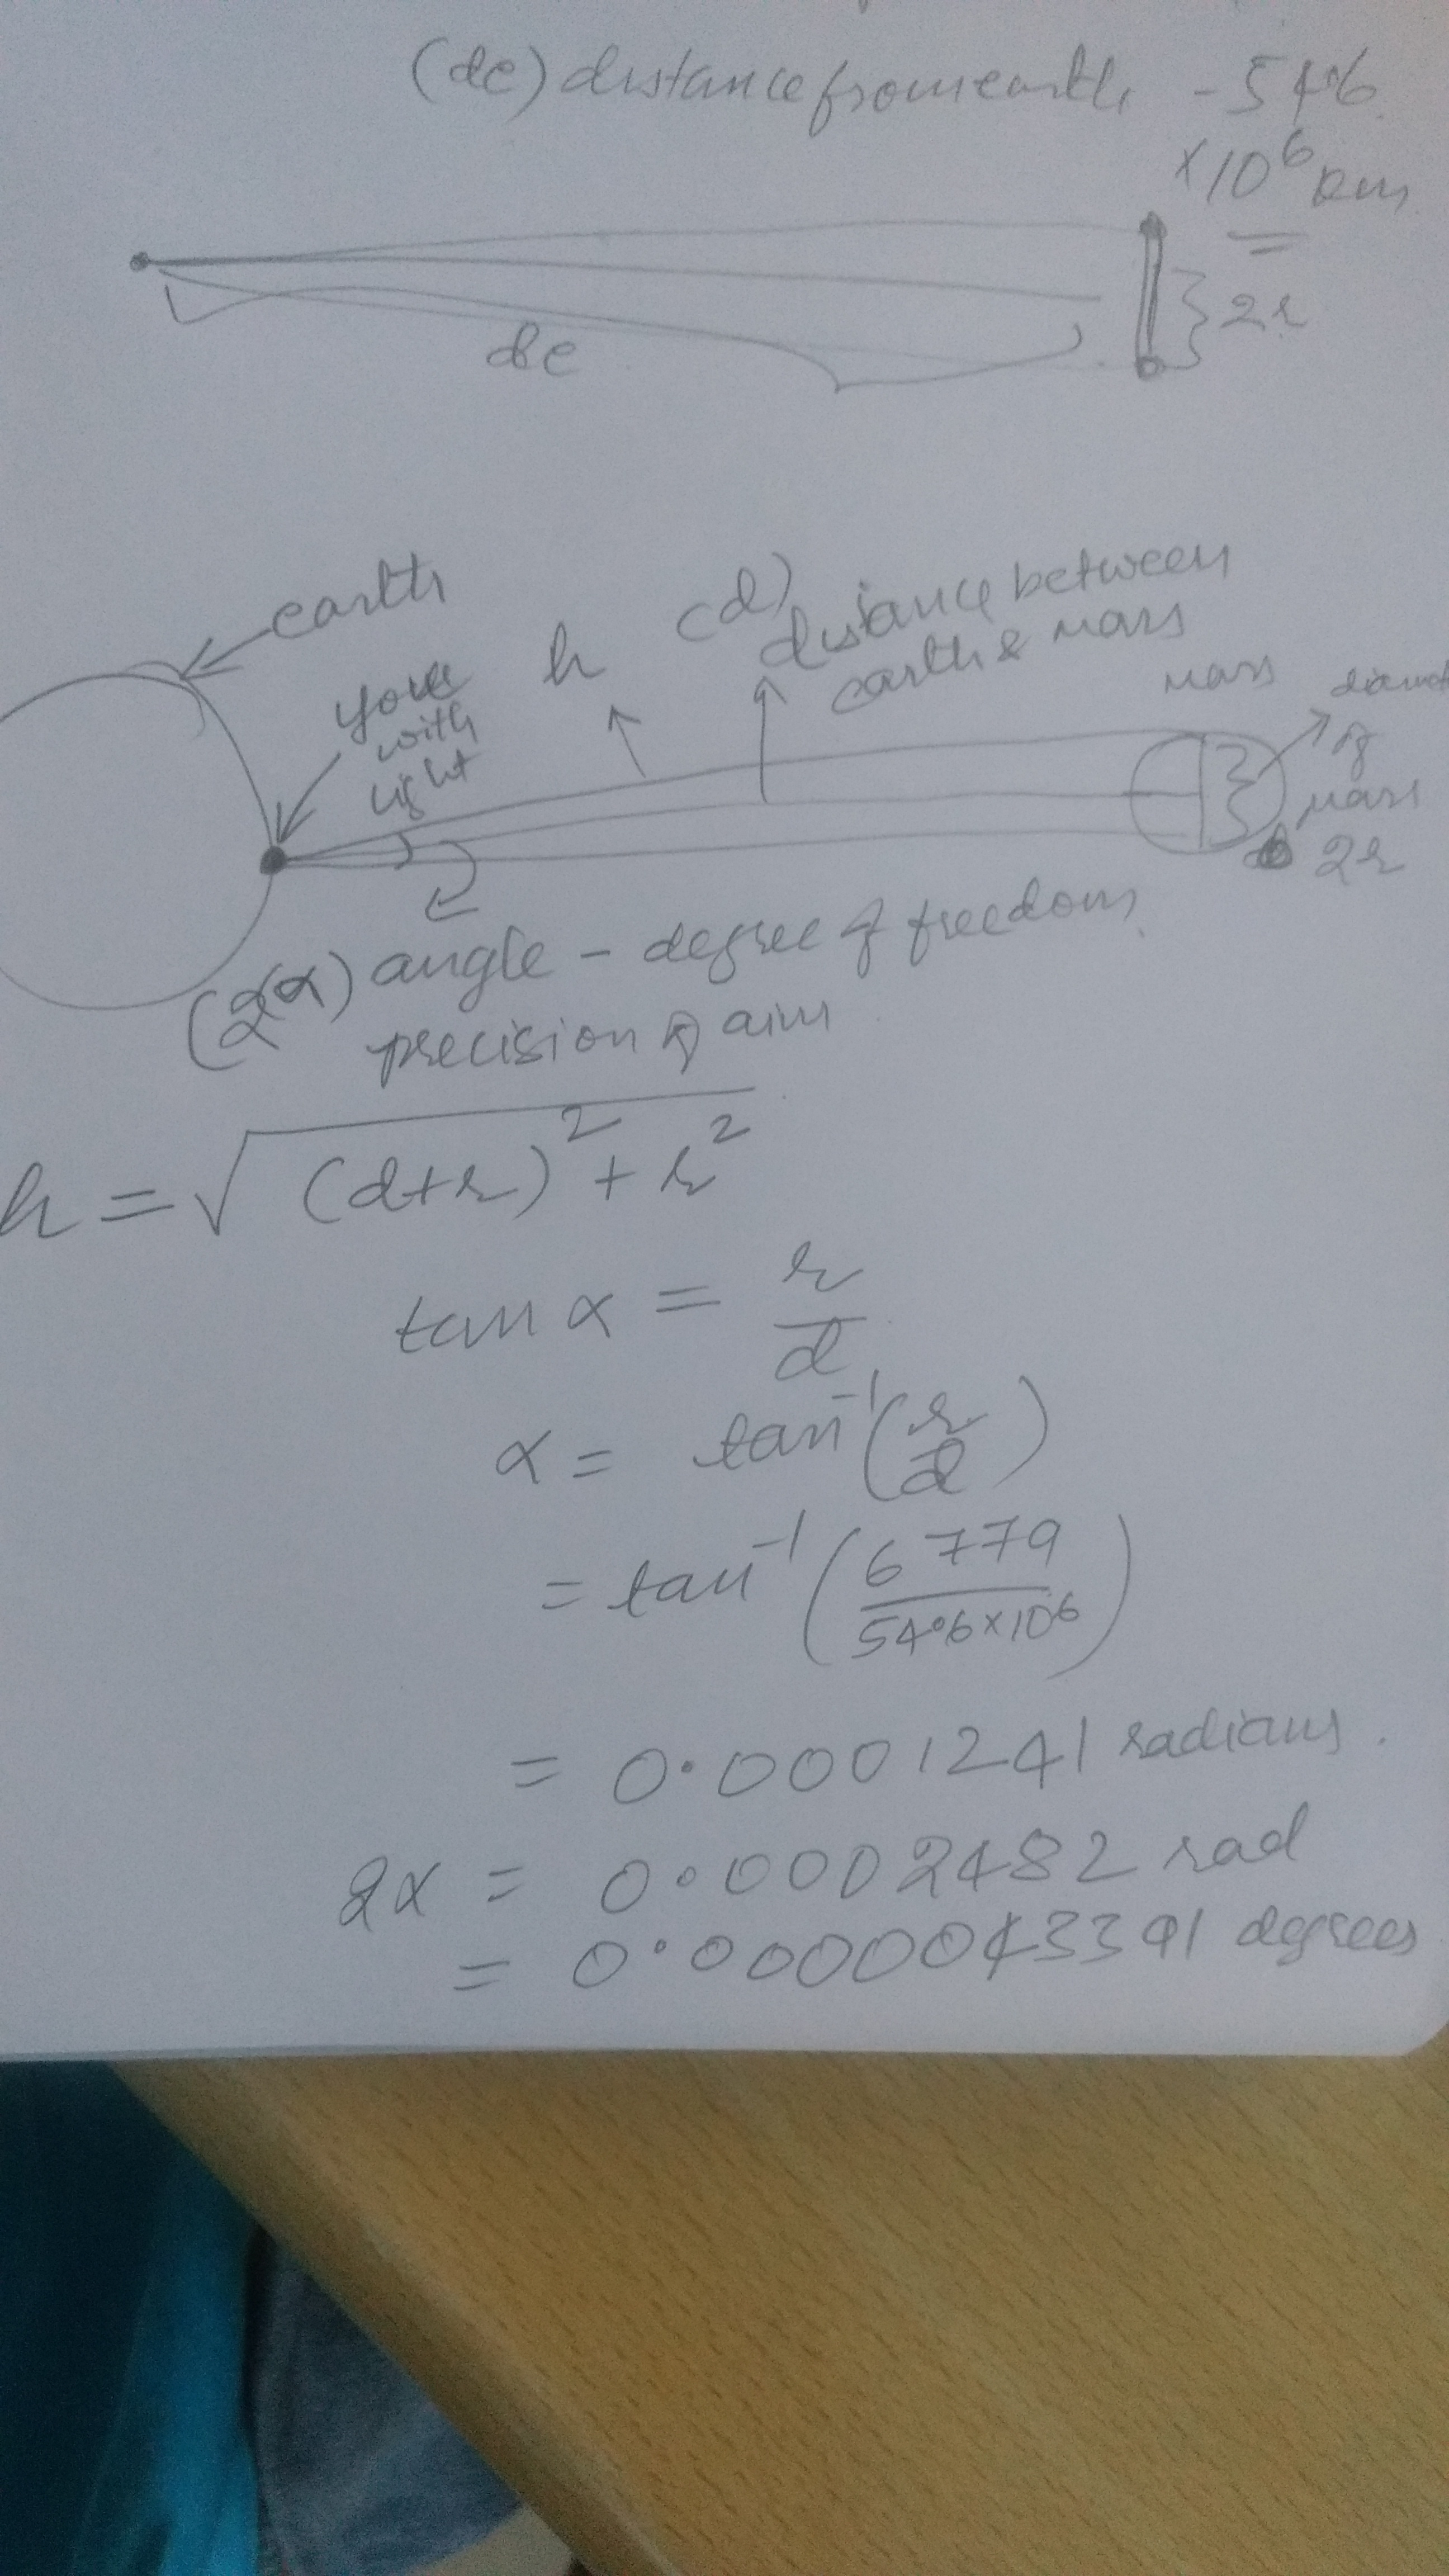 (de) distance from earth - 54.6
×10⁶ km
2r
de
earth
h
(d)
distance between
earth & mars
you
with
light
mars
diamet
of
mars
2r
(2α) angle - degree of freedom
precision of aim
h = √((d+r)² + r²)
tan α = r/d
α = tan⁻¹(r/d)
= tan⁻¹(6779/54.6×10⁶)
= 0.0001241 radians.
2α = 0.0002482 rad
= 0.0000043391 degrees